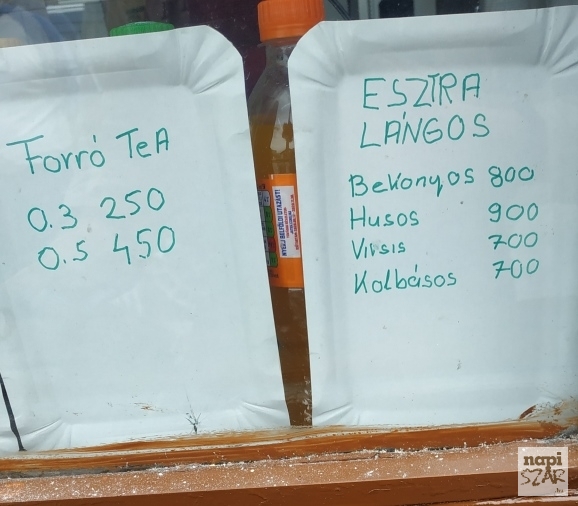 Forró TeA
0.3 250
0.5 450
ESZTRA
LÁNGOS
Bekonyos 800
Husos 900
Virsis 700
Kolbásos 700
napi
SZAR
.hu